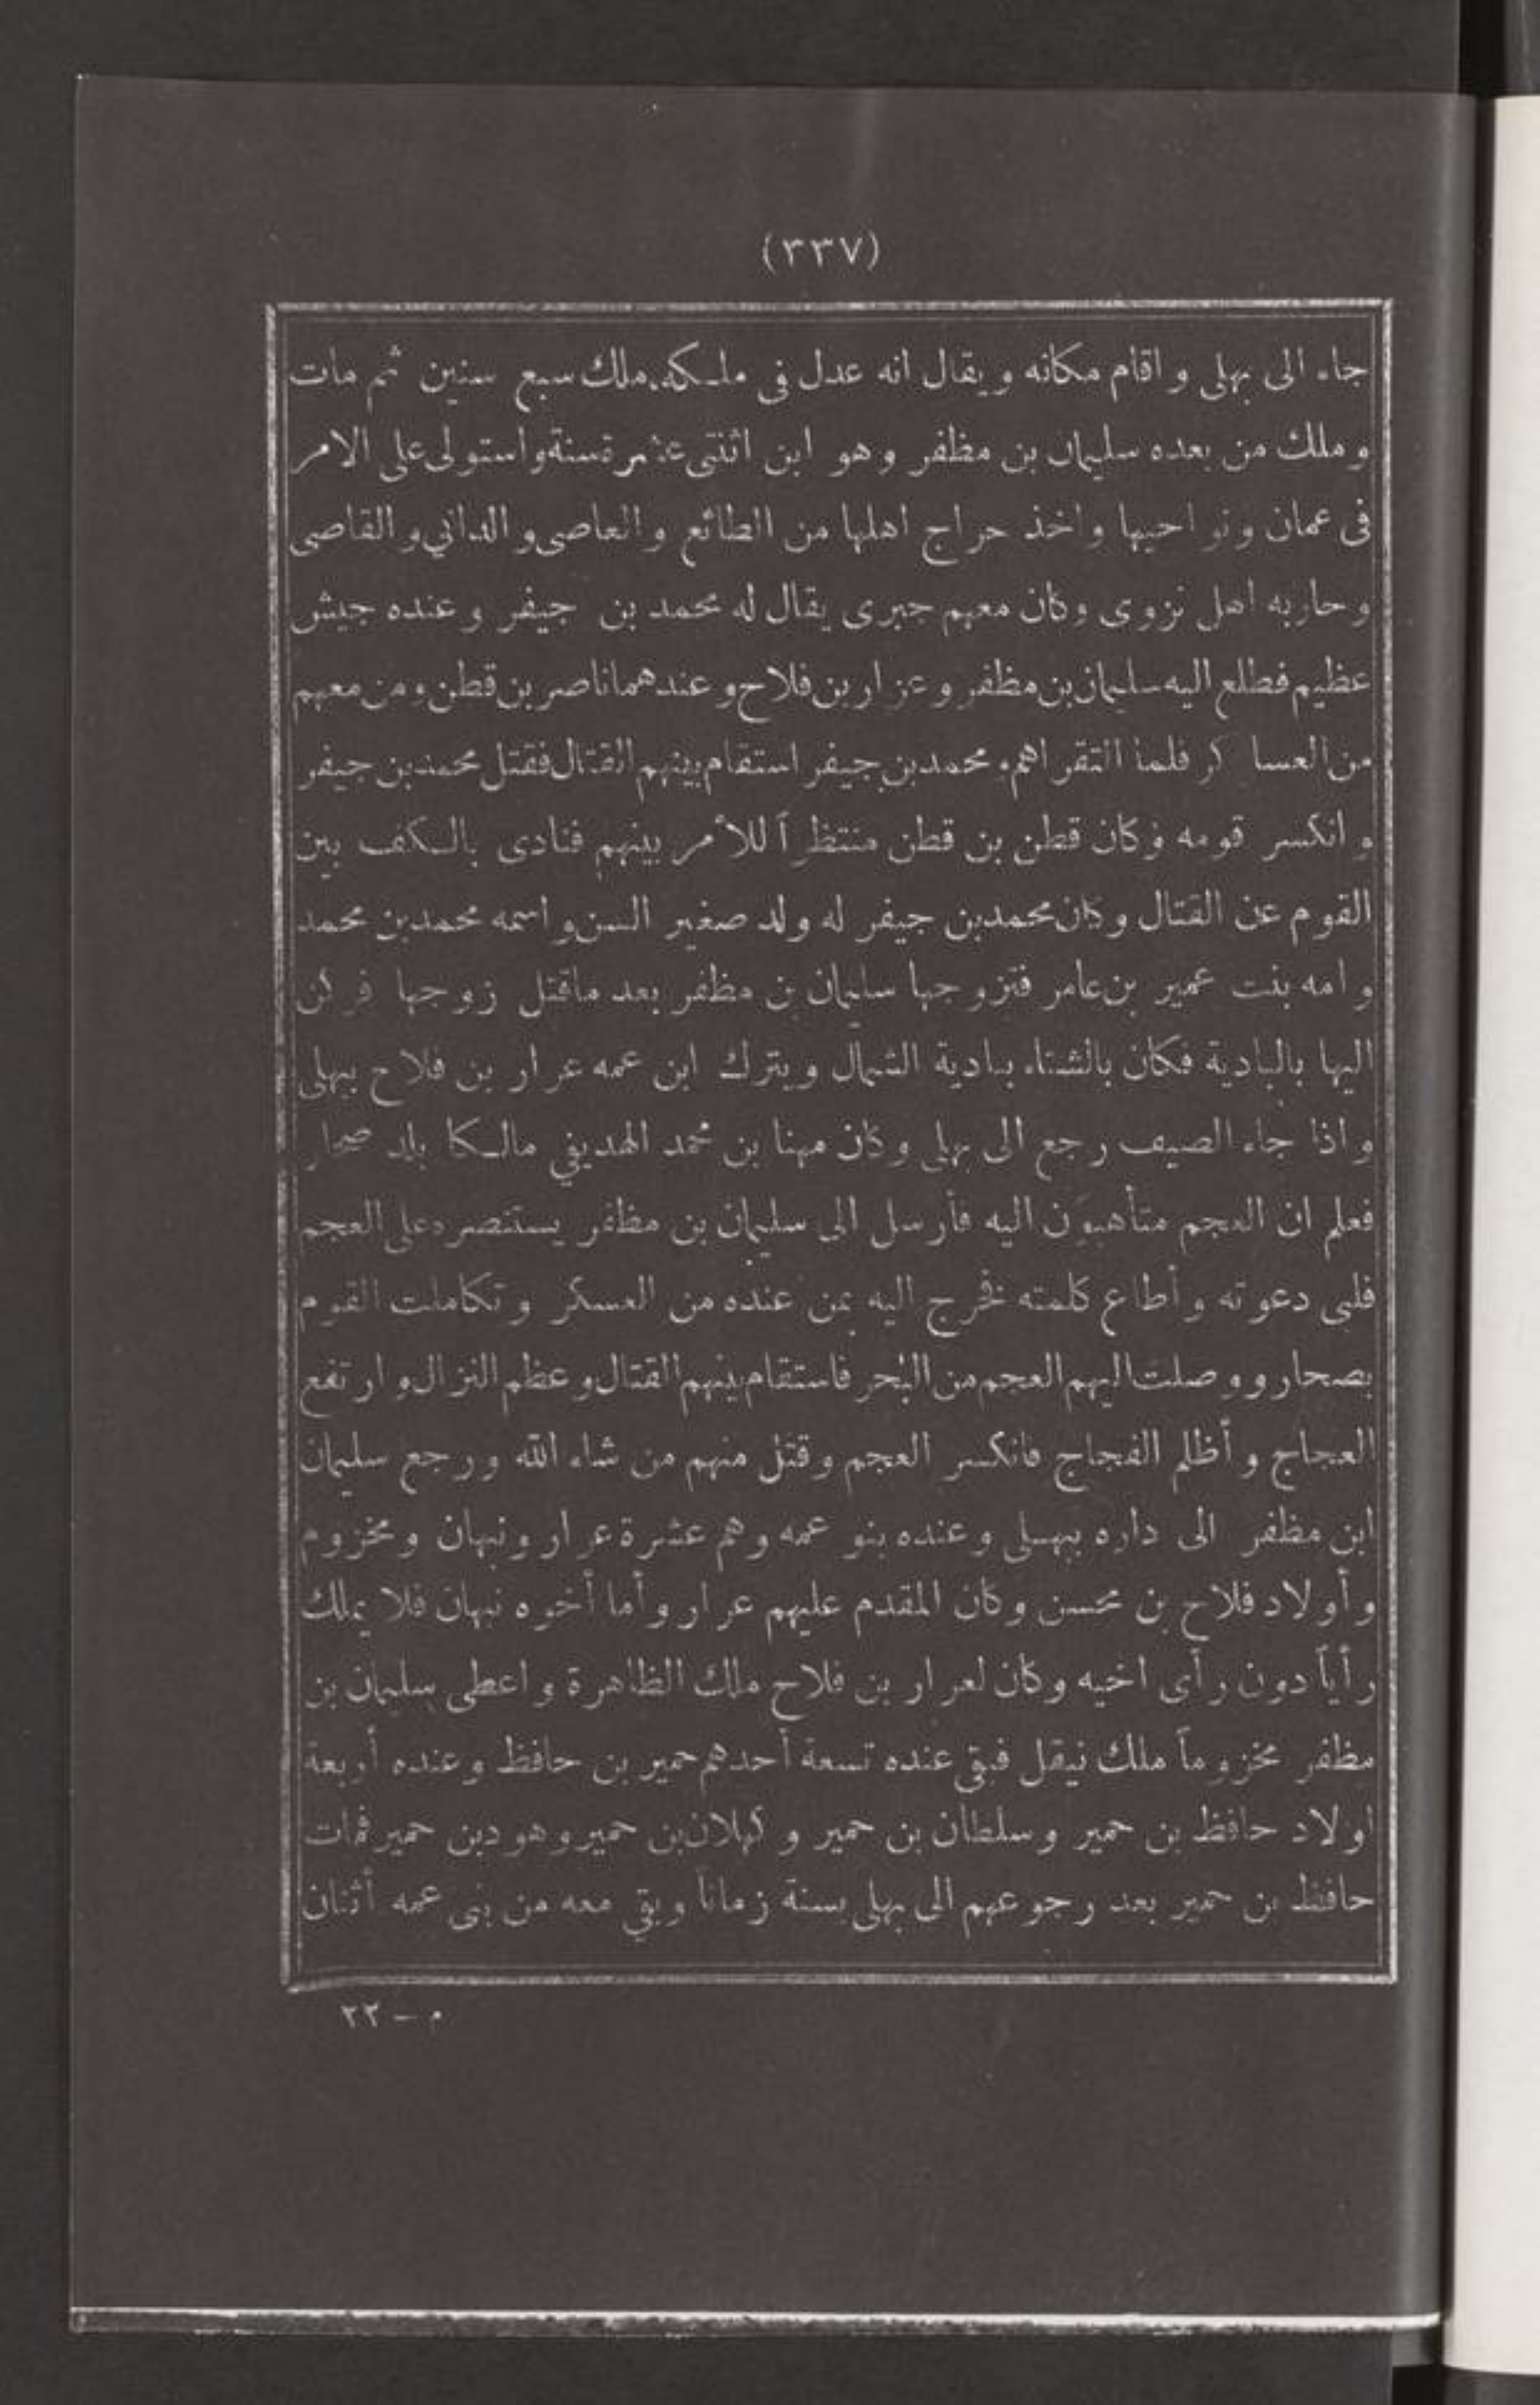 (٣٣٧)
جاء الى بهلى واقام مكانه ويقال انه عدل فى ملكه ملك سبع سنين ثم مات
وملك من بعده سليمان بن مظفر وهو ابن اثنتى عشرة سنة واستولى على الامر
فى عمان ونواحيها واخذ حراج اهلها من الطائع والعاصى والدانى والقاصى
وحاربه اهل نزوى وكان معهم جبرى يقال له محمد بن جيفر وعنده جيش
عظيم فطلع اليه سليمان بن مظفر وعرار بن فلاح وعندهما ناصر بن قطن ومن معهم
من العساكر فلما التقراهم ومحمد بن جيفر استقام بينهم القتال فقتل محمد بن جيفر
وانكسر قومه وكان قطن بن قطن منتظراً للأمر بينهم فنادى بالكف بين
القوم عن القتال وكان محمد بن جيفر له ولد صغير السن واسمه محمد بن محمد
وامه بنت عمير بن عامر فتزوجها سليمان بن مظفر بعد ماقتل زوجها فركن
اليها بالبادية فكان بالشتاء ببادية الشمال ويترك ابن عمه عرار بن فلاح ببهلى
واذا جاء الصيف رجع الى بهلى وكان مهنا بن محمد الهديفي مالكا بلد صحار
فعلم ان العجم متأهبون اليه فأرسل الى سليمان بن مظفر يستنصره على العجم
فلبى دعوته وأطاع كلمته فخرج اليه بمن عنده من العسكر وتكاملت القوم
بصحار ووصلت اليهم العجم من البحر فاستقام بينهم القتال وعظم النزال وارتفع
العجاج وأظلم الفجاج فانكسر العجم وقتل منهم من شاء الله ورجع سليمان
ابن مظفر الى داره ببهلى وعنده بنو عمه وهم عشرة عرار ونبهان ومخزوم
وأولاد فلاح بن محسن وكان المقدم عليهم عرار وأما أخوه نبهان فلا يملك
رأياً دون رأى اخيه وكان لعرار بن فلاح ملك الظاهرة واعطى سليمان بن
مظفر مخزوماً ملك نيقل فبقى عنده تسعة أحدهم حمير بن حافظ وعنده أربعة
اولاد حافظ بن حمير وسلطان بن حمير وكهلان بن حمير وهود بن حمير فمات
حافظ بن حمير بعد رجوعهم الى بهلى بسنة زماناً وبقي معه من بنى عمه أثنان
م — ٢٢